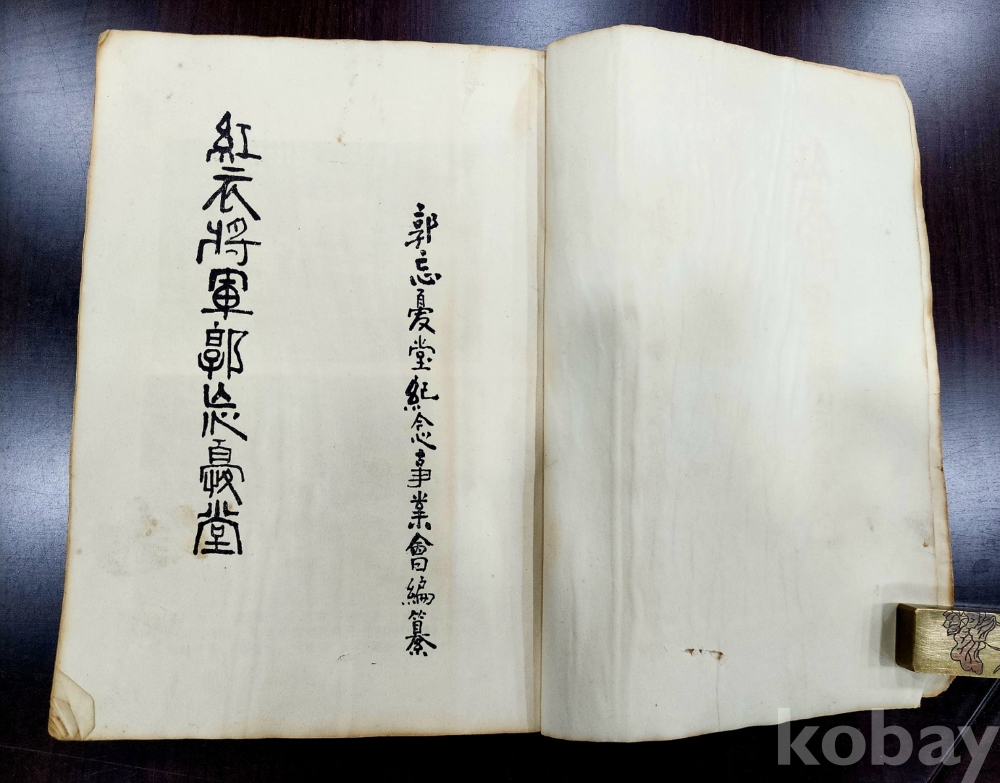 郭忘憂堂紀念事業會編纂
紅衣將軍郭忘憂堂
kobay